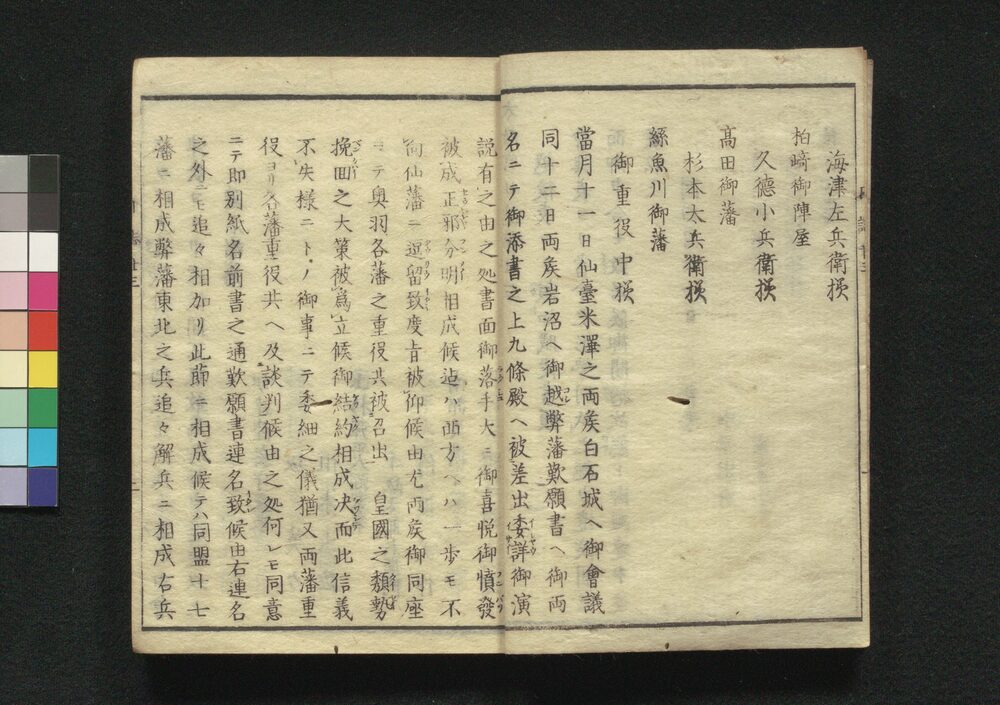 海津左兵衛様
柏﨑御陣屋
久德小兵衛様
髙田御藩
杉本太兵衛様
絲魚川御藩
御重役中様
當月十一日仙臺米澤之両矦白石城ヘ御會議
同十二日両矦岩沼ヘ御越弊藩歎願書ヘ御両
名ニテ御添書之上九條殿ヘ被差出委詳御演
説有之由之処書面御落手大ニ御喜悦御憤發
被成正邪分明相成候迠ハ西方ヘハ一歩モ不
向仙藩ニ逗留致度㫖被仰候由尤両矦御同座
ニテ奥羽各藩之重役共被召出 皇國之頽勢
挽囬之大策被爲立候御結約相成决而此信義
不失様ニトノ御事ニテ委細之儀猶又両藩重
役ヨリ各藩重役共ヘ及談判候由之処何レモ同意
ニテ即別紙名前書之通歎願書連名致候由右連名
之外ニモ追々相加リ此節ニ相成候テハ同盟十七
藩ニ相成弊藩東北之兵追々解兵ニ相成右兵